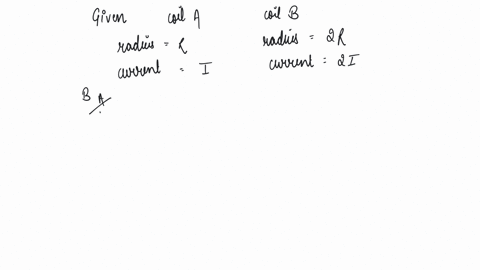 Given coil A coil B
radius = R radius = 2R
current = I current = 2I
B A